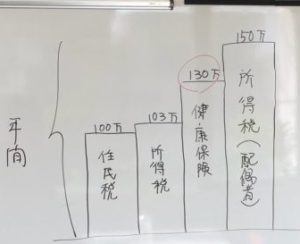 年間
100万
住民税
103万
所得税
130万
健康保険
150万
所得税(配偶者)